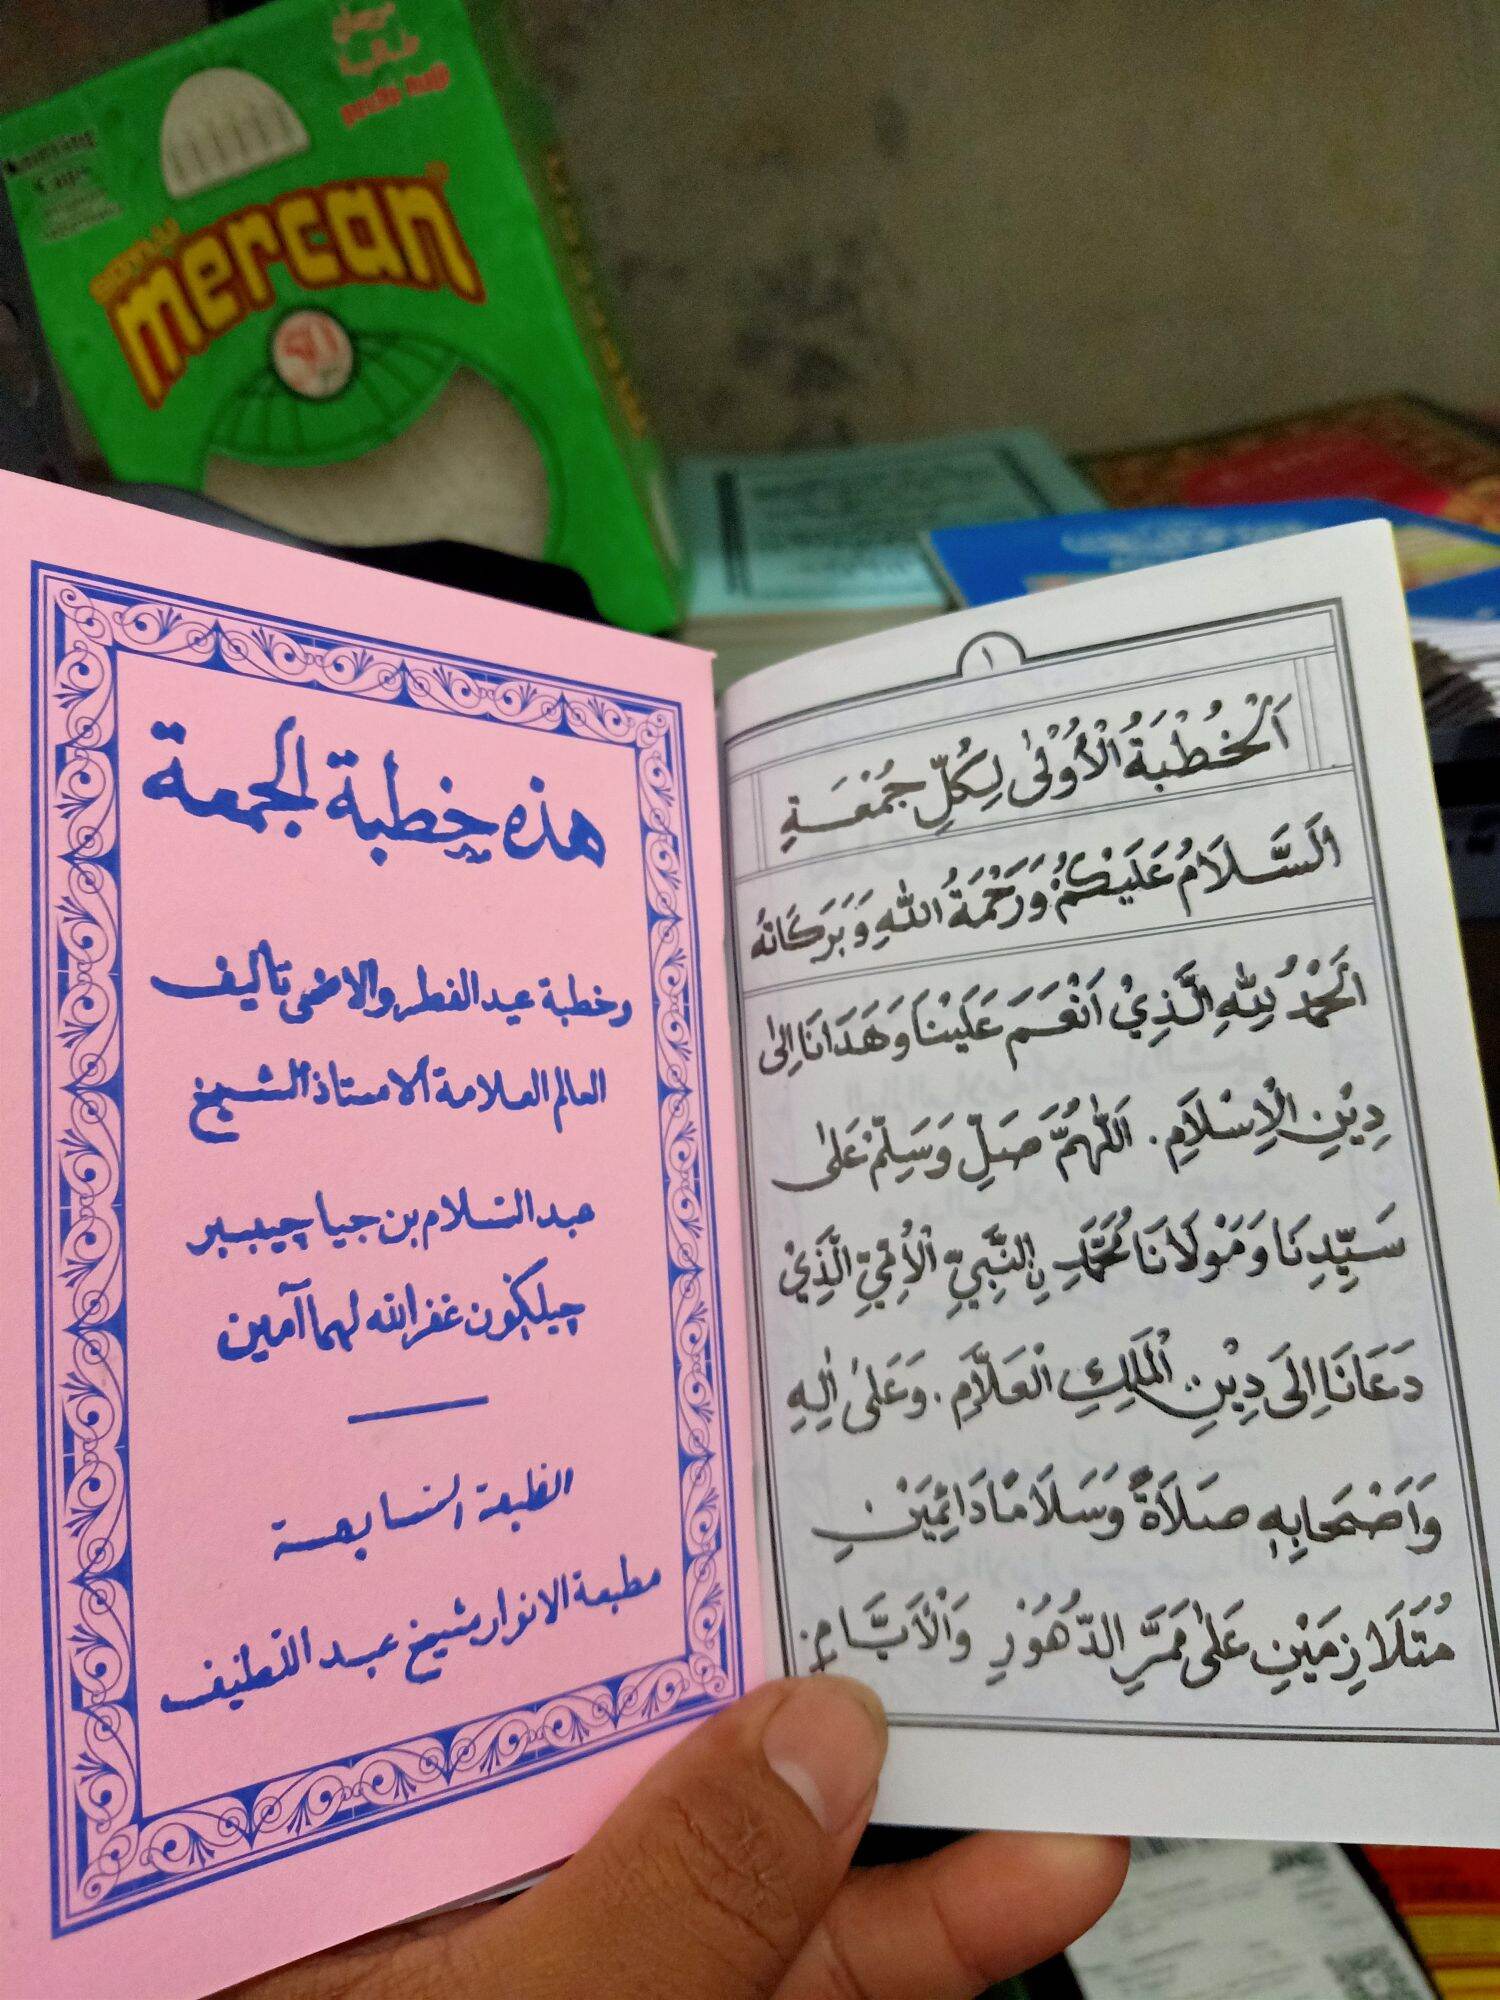 Knitting
Caps
mercan
50
هذه خطبة الجمعة
وخطبة عيد الفطر والاضحى تاليف
العالم العلامة الاستاذ الشيخ
عبد السلام بن جيا چيبير
چيلڮون غفر الله لهما آمين
الطبعة السابعة
مطبعة الانوار مشيخ عبد اللطيف
١
اَلْخُطْبَةُ الْأُوْلٰى لِكُلِّ جُمْعَةٍ
اَلسَّلَامُ عَلَيْكُمْ وَرَحْمَةُ اللهِ وَبَرَكَاتُهُ
اَلْحَمْدُ لِلّٰهِ الَّذِيْ اَنْعَمَ عَلَيْنَا وَهَدَانَا اِلٰى
دِيْنِ الْاِسْلَامِ. اَللّٰهُمَّ صَلِّ وَسَلِّمْ عَلٰى
سَيِّدِنَا وَمَوْلَانَا مُحَمَّدٍ نِ النَّبِيِّ الْاُمِّيِّ الَّذِيْ
دَعَانَا اِلَى دِيْنِ الْمَلِكِ الْعَلَّامِ. وَعَلٰى اٰلِهِ
وَاَصْحَابِهِ صَلَاةً وَسَلَامًا دَائِمَيْنِ
مُتَلَازِمَيْنِ عَلٰى مَمَرِّ الدُّهُوْرِ وَالْاَيَّامِ.